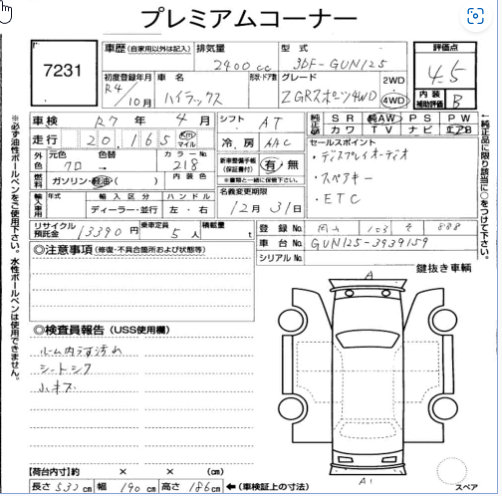 プレミアムコーナー
7231
車歴 (自家用以外は記入) 排気量 型式 評価点
2400cc 3DF-GUN125 4.5
初度登録年月 車名 形状・ドア数 グレード 2WD 4WD
R4/10月 ハイラックス Z GRスポーツ4WD
内装補助評価 B
車検 R7年4月 シフト AT
SR 純AW PS PW
カワ TV ナビ エアB
走行 20,165 km マイル 冷房 AAC
セールスポイント
・ディスプレイオーディオ
・スペアキー
・ETC
外色 元色 色替 カラーNo.
クロ→ 218
新車整備手帳(保証書付) 有/無
※書類と一緒に保管下さい。
燃料 ガソリン・軽油・( ) 内装色
名義変更期限
12月31日
輸入車用 輸入区分 ハンドル
ディーラー・並行 左・右
リサイクル預託金 13390円 乗車定員 5人 積載量 t
登録No. 103 888
車台No. GUN125-3939159
シリアルNo.
◎注意事項 (修復・不具合箇所および状態等)
鍵抜き車輌
A
◎検査員報告 (USS使用欄)
ルーム内ヨゴ汚れ
シートシワ
小キズ
A1
【荷台内寸】約 × × (cm)
長さ 532cm 幅 190cm 高さ 186cm ←(車検証上の寸法)
スペア
※必ず油性ボールペンをご使用下さい。水性ボールペンは使用できません。
←純正品に限り該当に○をつけて下さい。